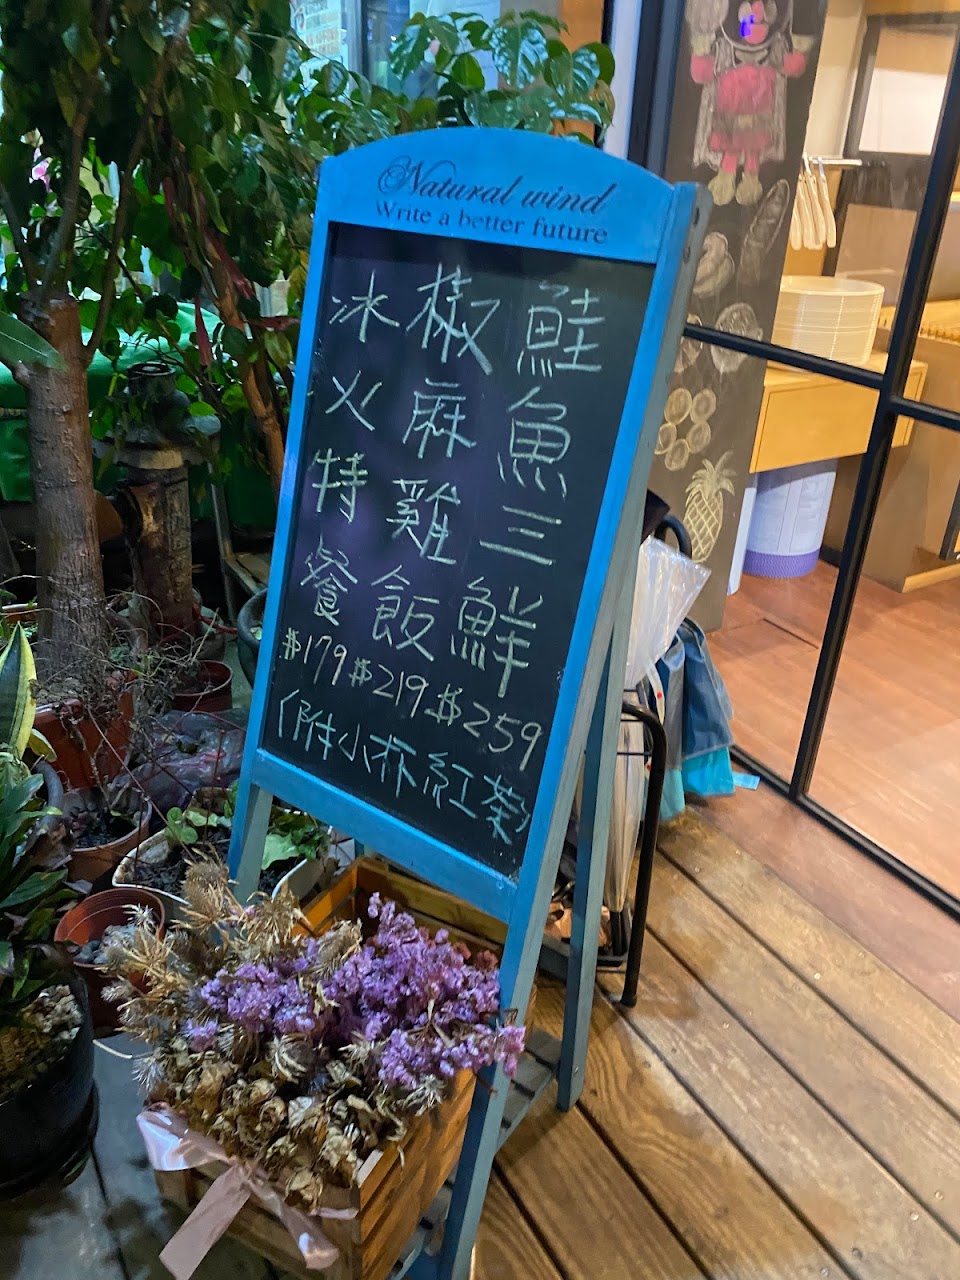 Natural wind
Write a better future
鮭魚三鮮
$259
椒麻雞飯
$219
冰火特餐
$179
(附小杯紅茶)